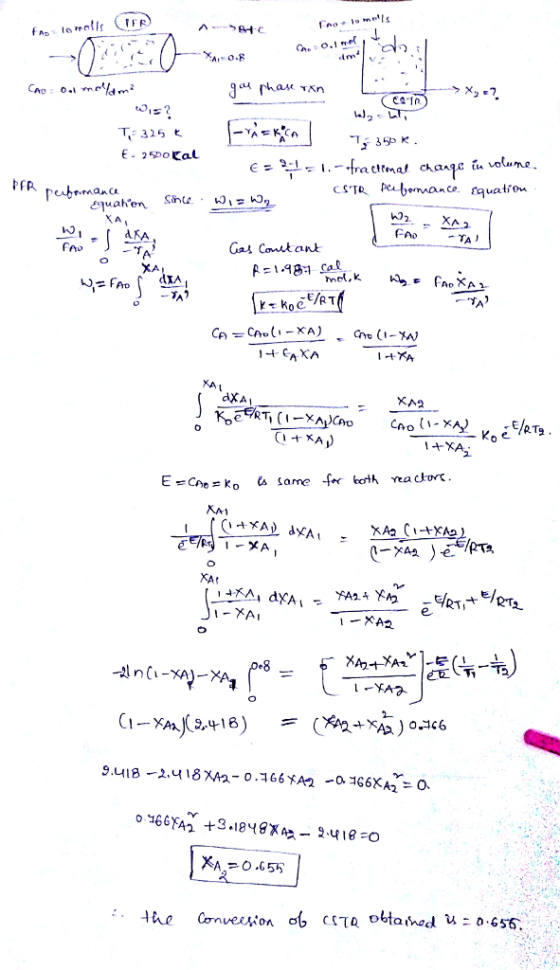 FA0 = 10 mol/s (PFR)
A → B+C
FA0 = 10 mol/s
XA1 = 0.8
CA0 = 0.1 mol/dm³
CA0 = 0.1 mol/dm³
gas phase rxn
(CSTR)
X2 = ?
W1 = ?
W2 = W1
T1 = 325 K
-rA' = KA CA
T2 = 350 K.
E = 2500 cal
ε = 2-1/1 = 1. - fractional change in volume.
PFR performance equation
since W1 = W2
CSTR Performance equation.
W1/FA0 = ∫0^XA1 dXA1/-rA'
W2/FA0 = XA2/-rA'
W1 = FA0 ∫0^XA1 dXA1/-rA'
Gas Constant
R = 1.987 cal/mol.K
W2 = FA0 XA2/-rA'
K = K0 e^-E/RT
CA = CA0(1-XA)/1+εAXA = CA0(1-XA)/1+XA
∫0^XA1 dXA1/K0 e^-E/RT1 (1-XA1)CA0/(1+XA1) = XA2/CA0(1-XA2)/1+XA2 K0 e^-E/RT2.
E = CA0 = K0 is same for both reactors.
1/e^-E/RT1 ∫0^XA1 (1+XA1)/1-XA1 dXA1 = XA2(1+XA2)/(1-XA2) e^-E/RT2
∫0^XA1 1+XA1/1-XA1 dXA1 = XA2+XA2²/1-XA2 e^-E/RT1+E/RT2
-2ln(1-XA1)-XA1 |0^0.8 = [XA2+XA2²/1-XA2] e^-E/R(1/T1 - 1/T2)
(1-XA2)(2.418) = (XA2+XA2²) 0.766
2.418 - 2.418XA2 - 0.766XA2 - 0.766XA2² = 0.
0.766XA2² + 3.1848XA2 - 2.418 = 0
XA2 = 0.655
∴ the conversion of CSTR obtained is = 0.655.